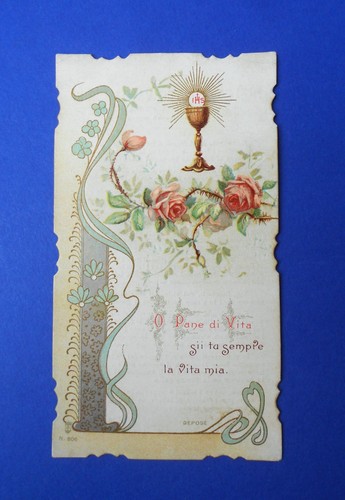 IHS
O Pane di Vita
sii tu sempre
la vita mia.
DEPOSÉ